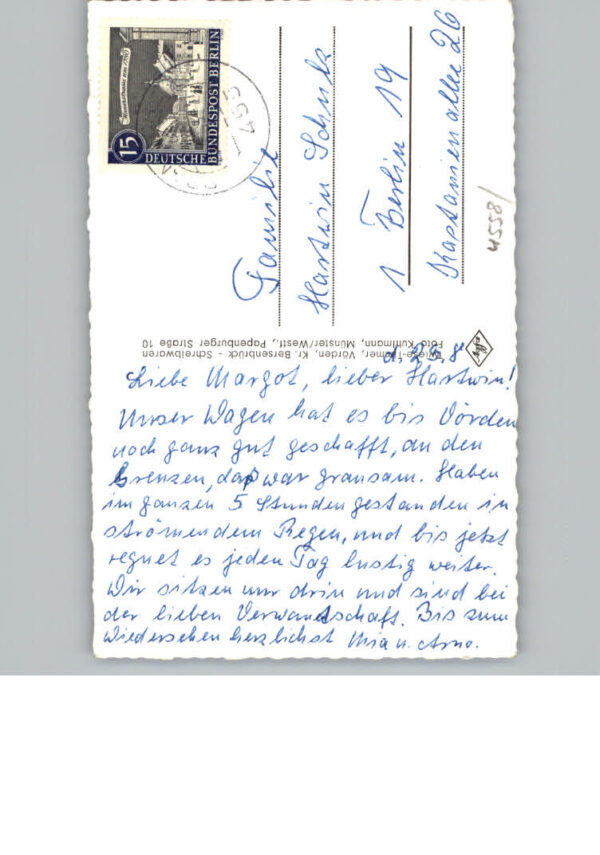 d. 23.8.
Liebe Margot, lieber Hartwin!
Unser Wagen hat es bis Vörden
noch ganz gut geschafft, an den
Grenzen, das war grausam. Haben
im ganzen 5 Stunden gestanden in
strömendem Regen, und bis jetzt
regnet es jeden Tag lustig weiter.
Wir sitzen nur drin und sind bei
der lieben Verwandschaft. Bis zum
Wiedersehen herzlichst Mia u. Arno.
Familie
Hartwin Schulz
1 Berlin 19
Kastanienallee 26
4558/
15
DEUTSCHE
BUNDESPOST BERLIN
Vörden, Kr. Bersenbrück - Schreibwaren
Foto Kuhlmann, Münster/Westf., Papenburger Straße 10